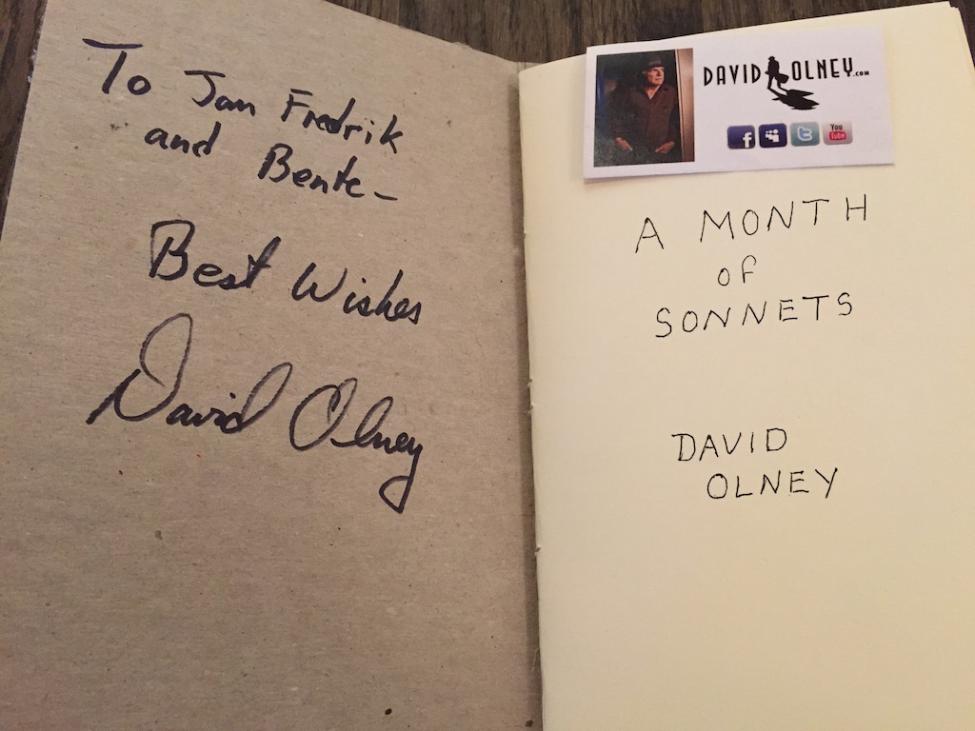 To Jan Fredrik
and Bente-
Best Wishes
David Olney
DAVID OLNEY.COM
f t You Tube
A MONTH
OF
SONNETS
DAVID
OLNEY